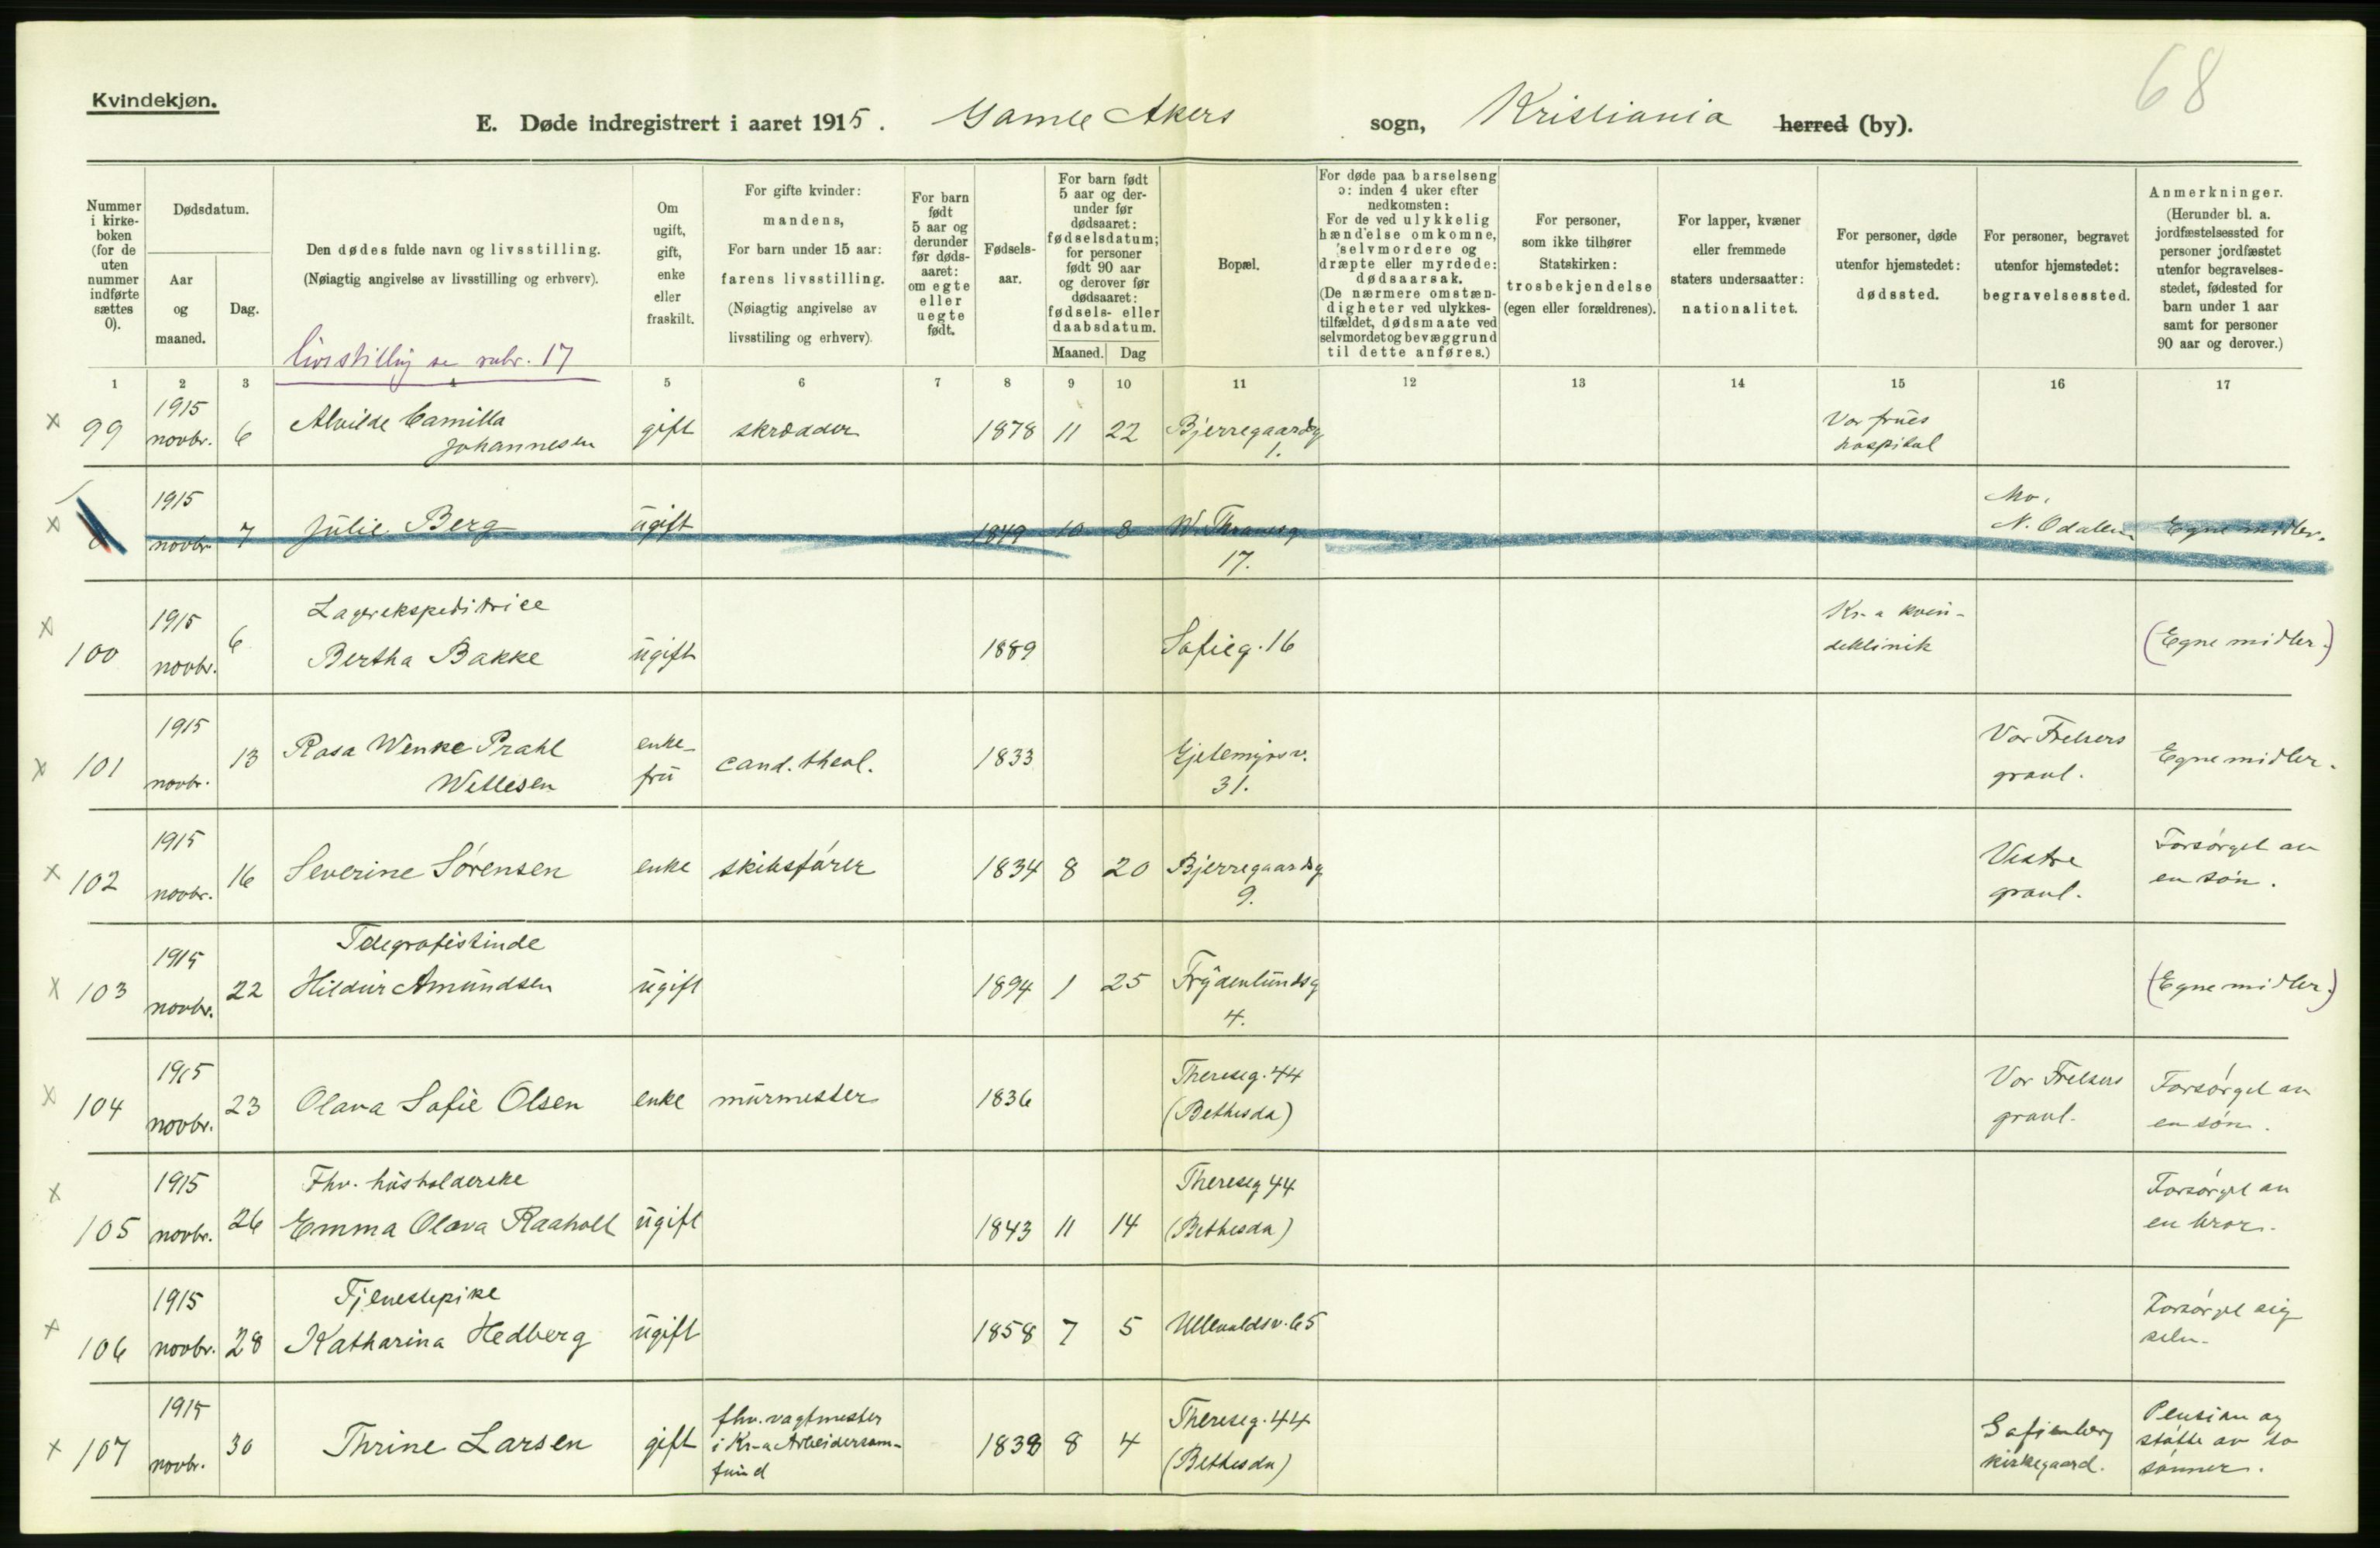 68
Kvindekjøn.
E. Døde indregistrert i aaret 1915. Gamle Akers sogn, Kristiania herred (by).
Nummer i kirke-boken (for de uten nummer indførte sættes 0).
Dødsdatum.
Aar og maaned.
Dag.
Den dødes fulde navn og livsstilling.
(Nøiagtig angivelse av livsstilling og erhverv).
livsstilling se rubr. 17
Om ugift, gift, enke eller fraskilt.
For gifte kvinder: mandens,
For barn under 15 aar: farens livsstilling.
(Nøiagtig angivelse av livsstiling og erhverv).
For barn født 5 aar og derunder før døds-aaret: om egte eller uegte født.
Fødsels-aar.
For barn født 5 aar og der-under før dødsaaret: fødselsdatum; for personer født 90 aar og derover før dødsaaret: fødsels- eller daabsdatum.
Maaned. Dag
Bopæl.
For døde paa barselseng ɔ: inden 4 uker efter nedkomsten:
For de ved ulykkelig hændelse omkomne, selvmordere og dræpte eller myrdede: dødsaarsak.
(De nærmere omstæn-digheter ved ulykkes-tilfældet, dødsmaate ved selvmordet og bevæggrund til dette anføres.)
For personer, som ikke tilhører Statskirken: trosbekjendelse (egen eller forældrenes).
For lapper, kvæner eller fremmede staters undersaatter: nationalitet.
For personer, døde utenfor hjemstedet: dødssted.
For personer, begravet utenfor hjemstedet: begravelsessted.
Anmerkninger.
(Herunder bl. a. jordfæstelsessted for personer jordfæstet utenfor begravelses-stedet, fødested for barn under 1 aar samt for personer 90 aar og derover.)
1 2 3 4 5 6 7 8 9 10 11 12 13 14 15 16 17
x 99 1915 novbr. 6 Alvilde Camilla Johannesen gift skrædder 1878 11 22 Bjerregaardsg 1. Vor frues hospital
x 1915 novbr. 7 Julie Berg ugift 1849 10 8 W. Thranesg 17. Mo, N. Odalen Egne midler.
x 100 1915 novbr. 6 Lagerekspeditrice Bertha Bakke ugift 1889 Sofieg. 16 Kr-a kvin-deklinik (Egne midler.)
x 101 1915 novbr. 13 Rosa Wenke Prahl Willesen enke-fru cand. theol. 1833 Gjetemyrsv. 31. Vor Frelsers gravl. Egne midler.
x 102 1915 novbr. 16 Severine Sørensen enke skibsfører 1834 8 20 Bjerregaardsg 9. Vestre gravl. Forsørget av en søn.
x 103 1915 novbr. 22 Telegrafistinde Hildur Amundsen ugift 1894 1 25 Frydenlundsg 4. (Egne midler.)
x 104 1915 novbr. 23 Olava Sofie Olsen enke murmester 1836 Thereseg. 44 (Bethesda) Vor Frelsers gravl. Forsørget av en søn.
x 105 1915 novbr. 26 Fhv. husholderske Emma Olava Raaholt ugift 1843 11 14 Thereseg 44 (Bethesda) Forsørget av en bror.
x 106 1915 novbr. 28 Tjenestepike Katharina Hedberg ugift 1858 7 5 Ullevoldsv. 65 Forsørget sig selv.
x 107 1915 novbr. 30 Thrine Larsen gift fhv. vagtmester i Kr-a Arbeidersam-fund 1838 8 4 Thereseg. 44 (Bethesda) Sofienberg kirkegaard. Pension og støtte av to sønner.